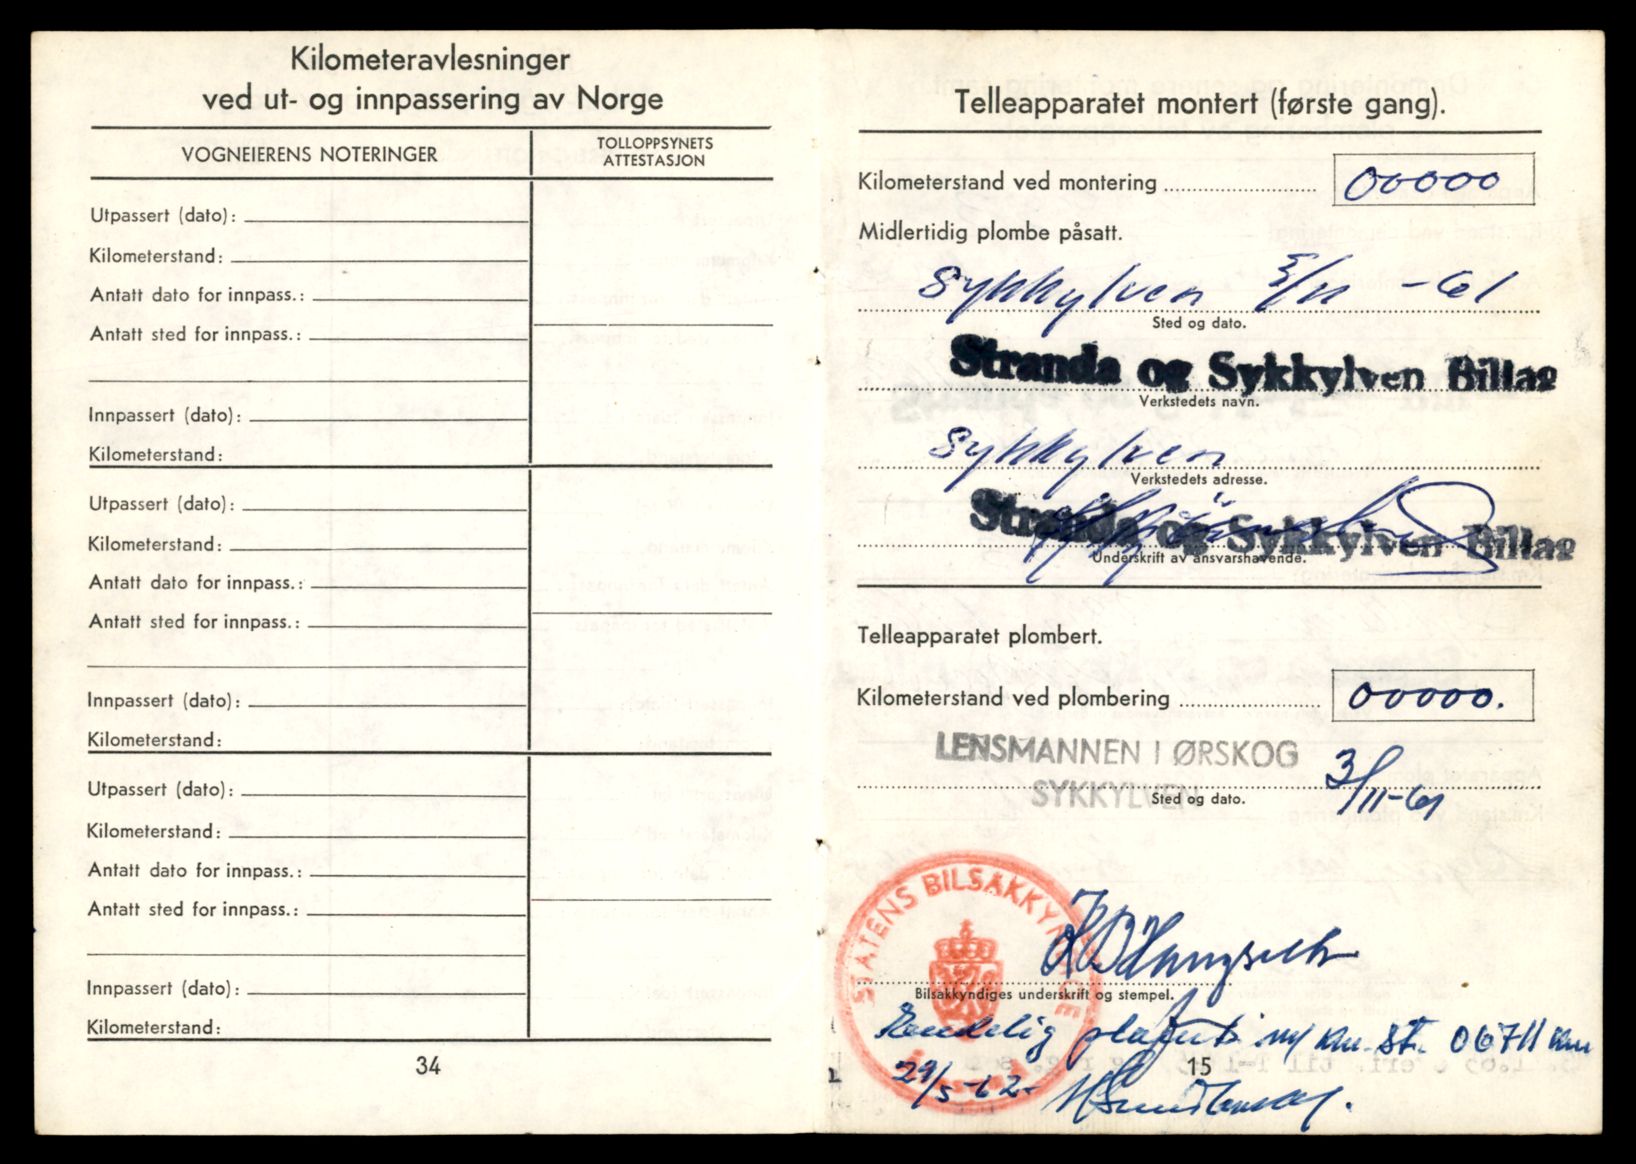 Kilometeravlesninger
ved ut- og innpassering av Norge
VOGNEIERENS NOTERINGER
TOLLOPPSYNETS
ATTESTASJON
Utpassert (dato):
Kilometerstand:
Antatt dato for innpass.:
Antatt sted for innpass.:
Innpassert (dato):
Kilometerstand:
Utpassert (dato):
Kilometerstand:
Antatt dato for innpass.:
Antatt sted for innpass.:
Innpassert (dato):
Kilometerstand:
Utpassert (dato):
Kilometerstand:
Antatt dato for innpass.:
Antatt sted for innpass.:
Innpassert (dato):
Kilometerstand:
34
Telleapparatet montert (første gang).
Kilometerstand ved montering 00000
Midlertidig plombe påsatt.
Sykkylven /11 -61
Sted og dato.
Stranda og Sykkylven Billag
Verkstedets navn.
Sykkylven
Verkstedets adresse.
Stranda og Sykkylven Billag
Underskrift av ansvarshavende.
Telleapparatet plombert.
Kilometerstand ved plombering 00000.
LENSMANNEN I ØRSKOG
SYKKYLVEN 3/11-61
Sted og dato.
STATENS BILSAKKYNDIGE
Bilsakkyndiges underskrift og stempel.
Endelig m/ km. st. 06711 km
15
29/5-62-